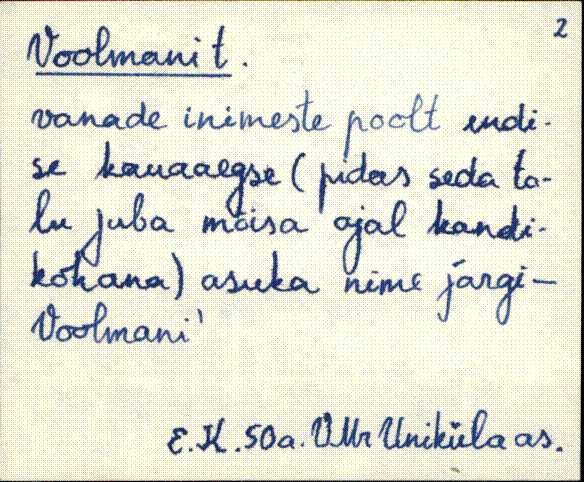 2
Voolmani t.
vanade inimeste poolt endi-
se kauaaegse (pidas seda ta-
lu juba mõisa ajal kandi-
kohana) asuka nime järgi—
Voolmani'
E.K. 50a. VMr Uniküla as.